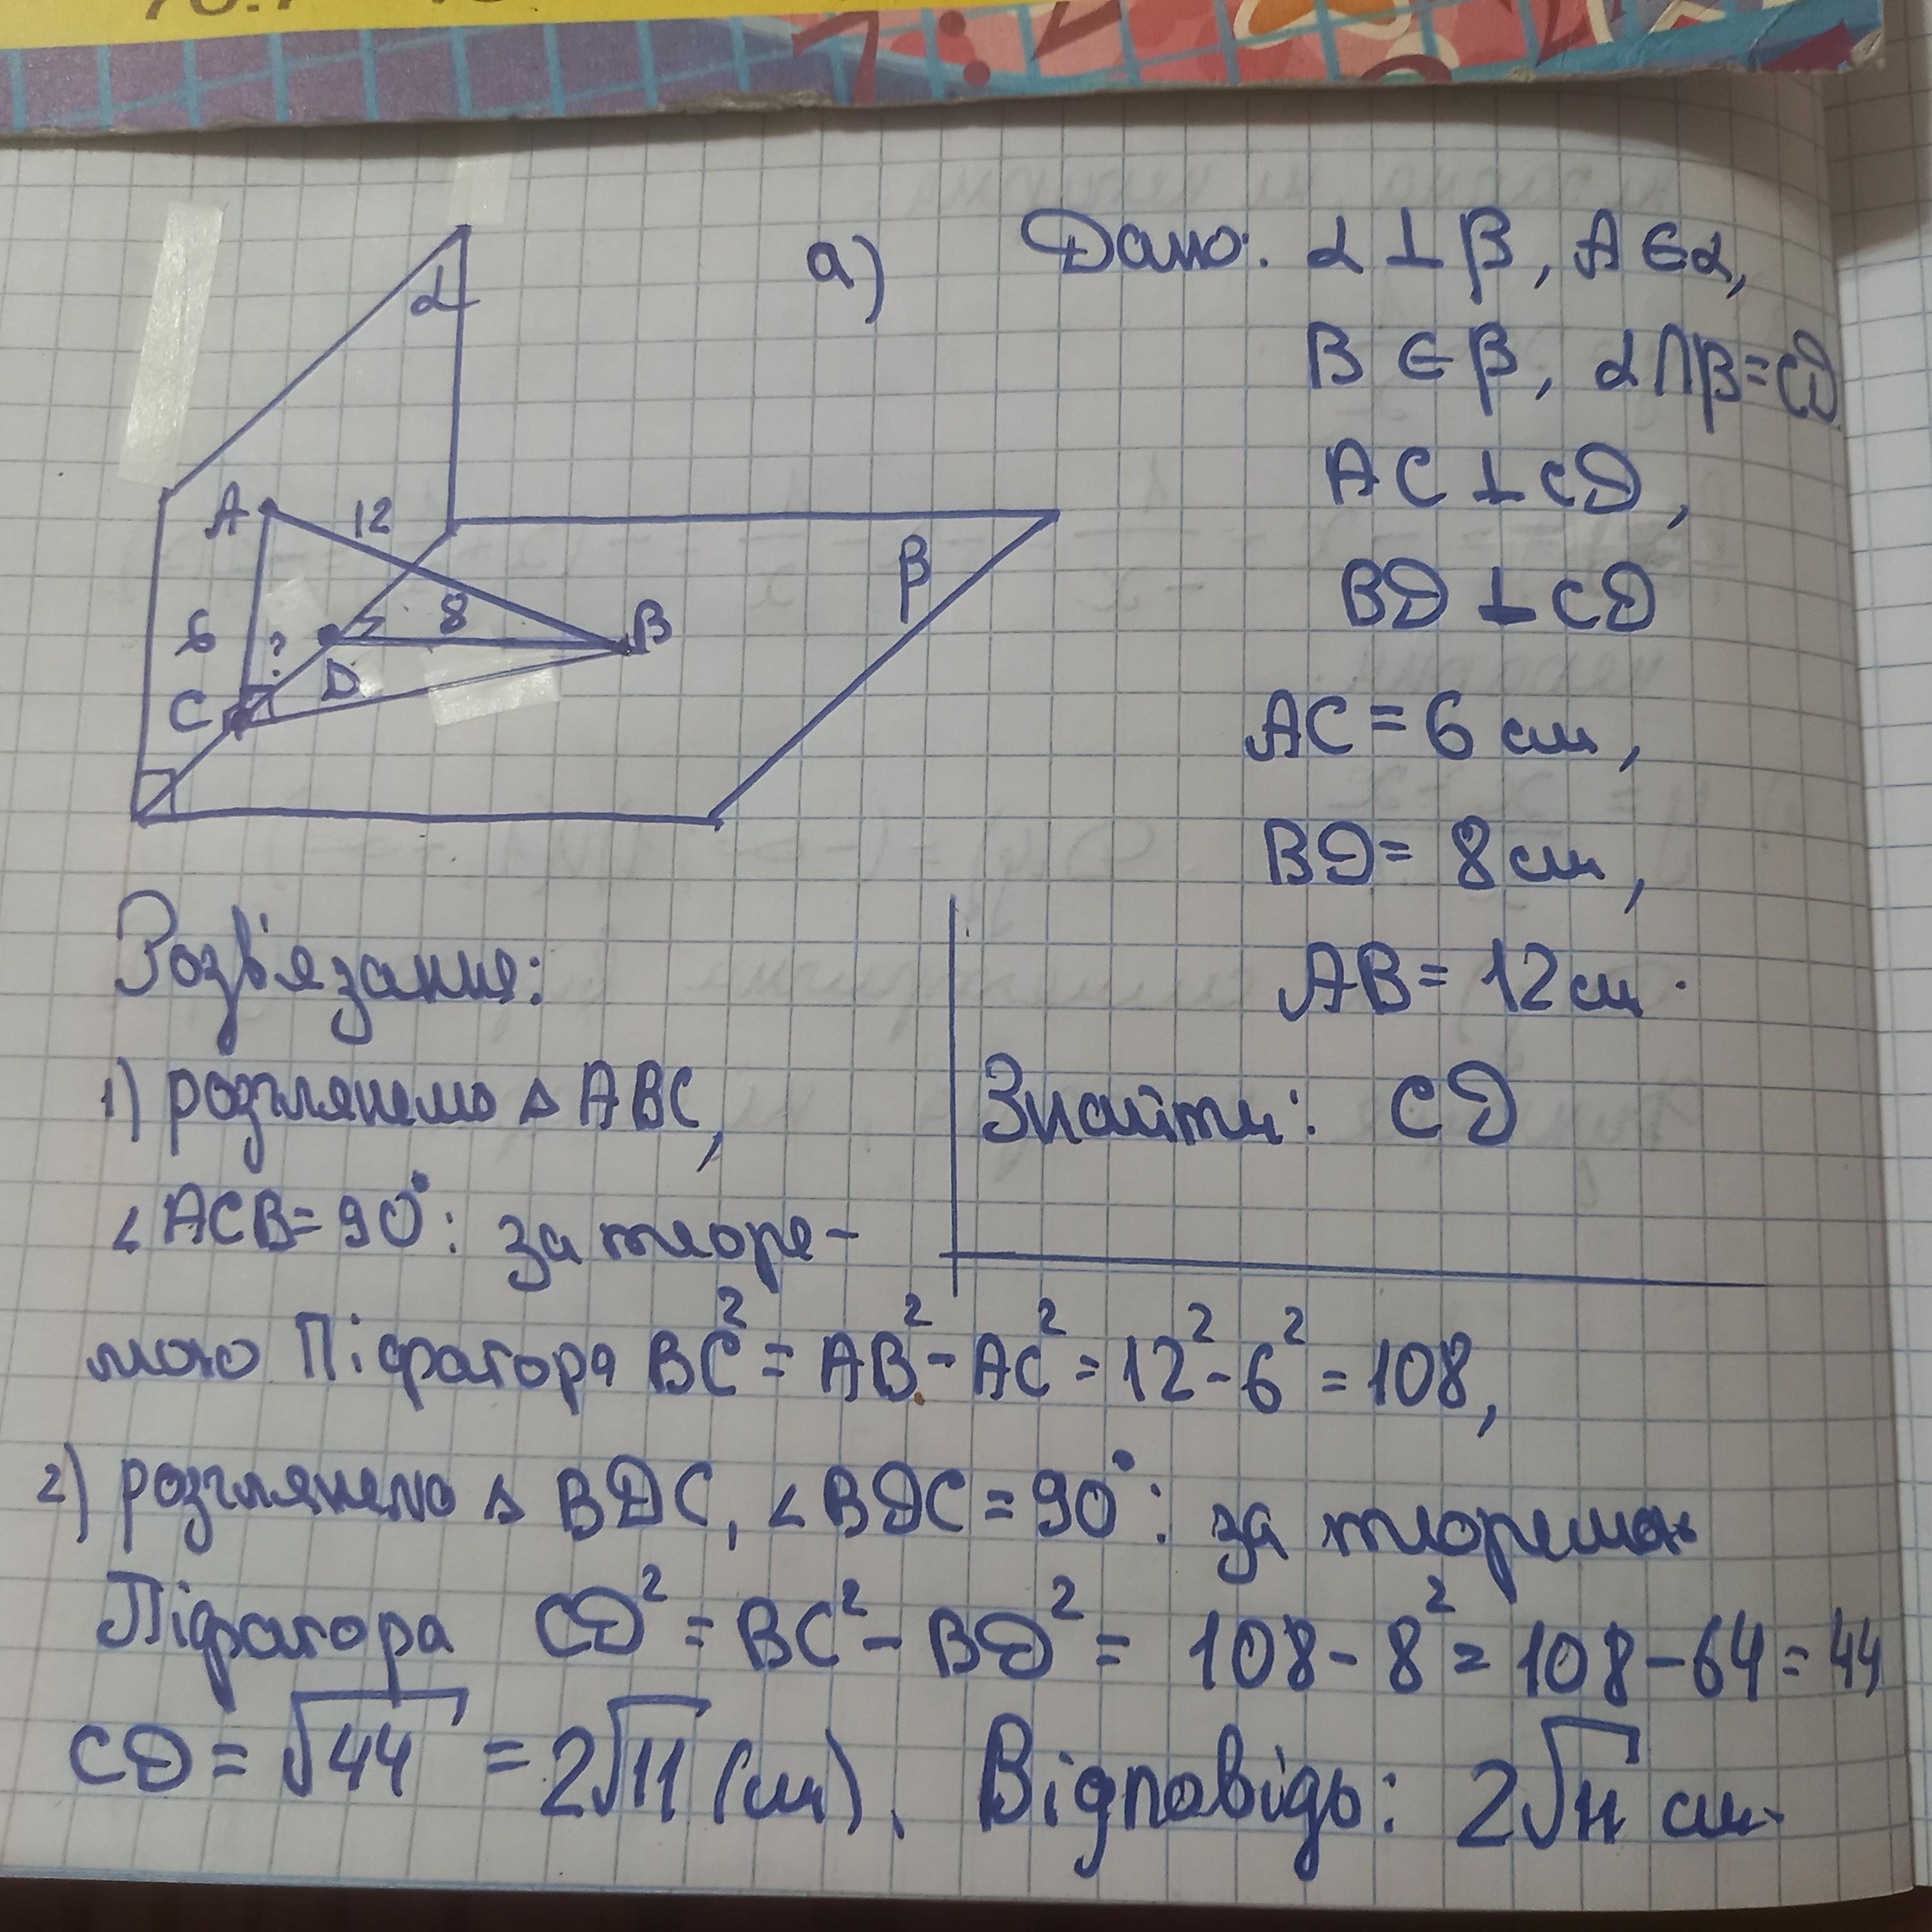 а) Дано: α ⊥ β, A ∈ α,
B ∈ β, α ∩ β = CD
AC ⊥ CD,
BD ⊥ CD
AC = 6 см,
BD = 8 см,
AB = 12 см.
Знайти: CD
α
A 12
β
6 ? 8 B
C D
Розв'язання:
1) розглянемо △ ABC,
∠ ACB = 90°: за теоре-
мою Піфагора BC² = AB² - AC² = 12² - 6² = 108,
2) розглянемо △ BDC, ∠ BDC = 90°: за теоремою
Піфагора CD² = BC² - BD² = 108 - 8² = 108 - 64 = 44
CD = √44 = 2√11 (см). Відповідь: 2√11 см.